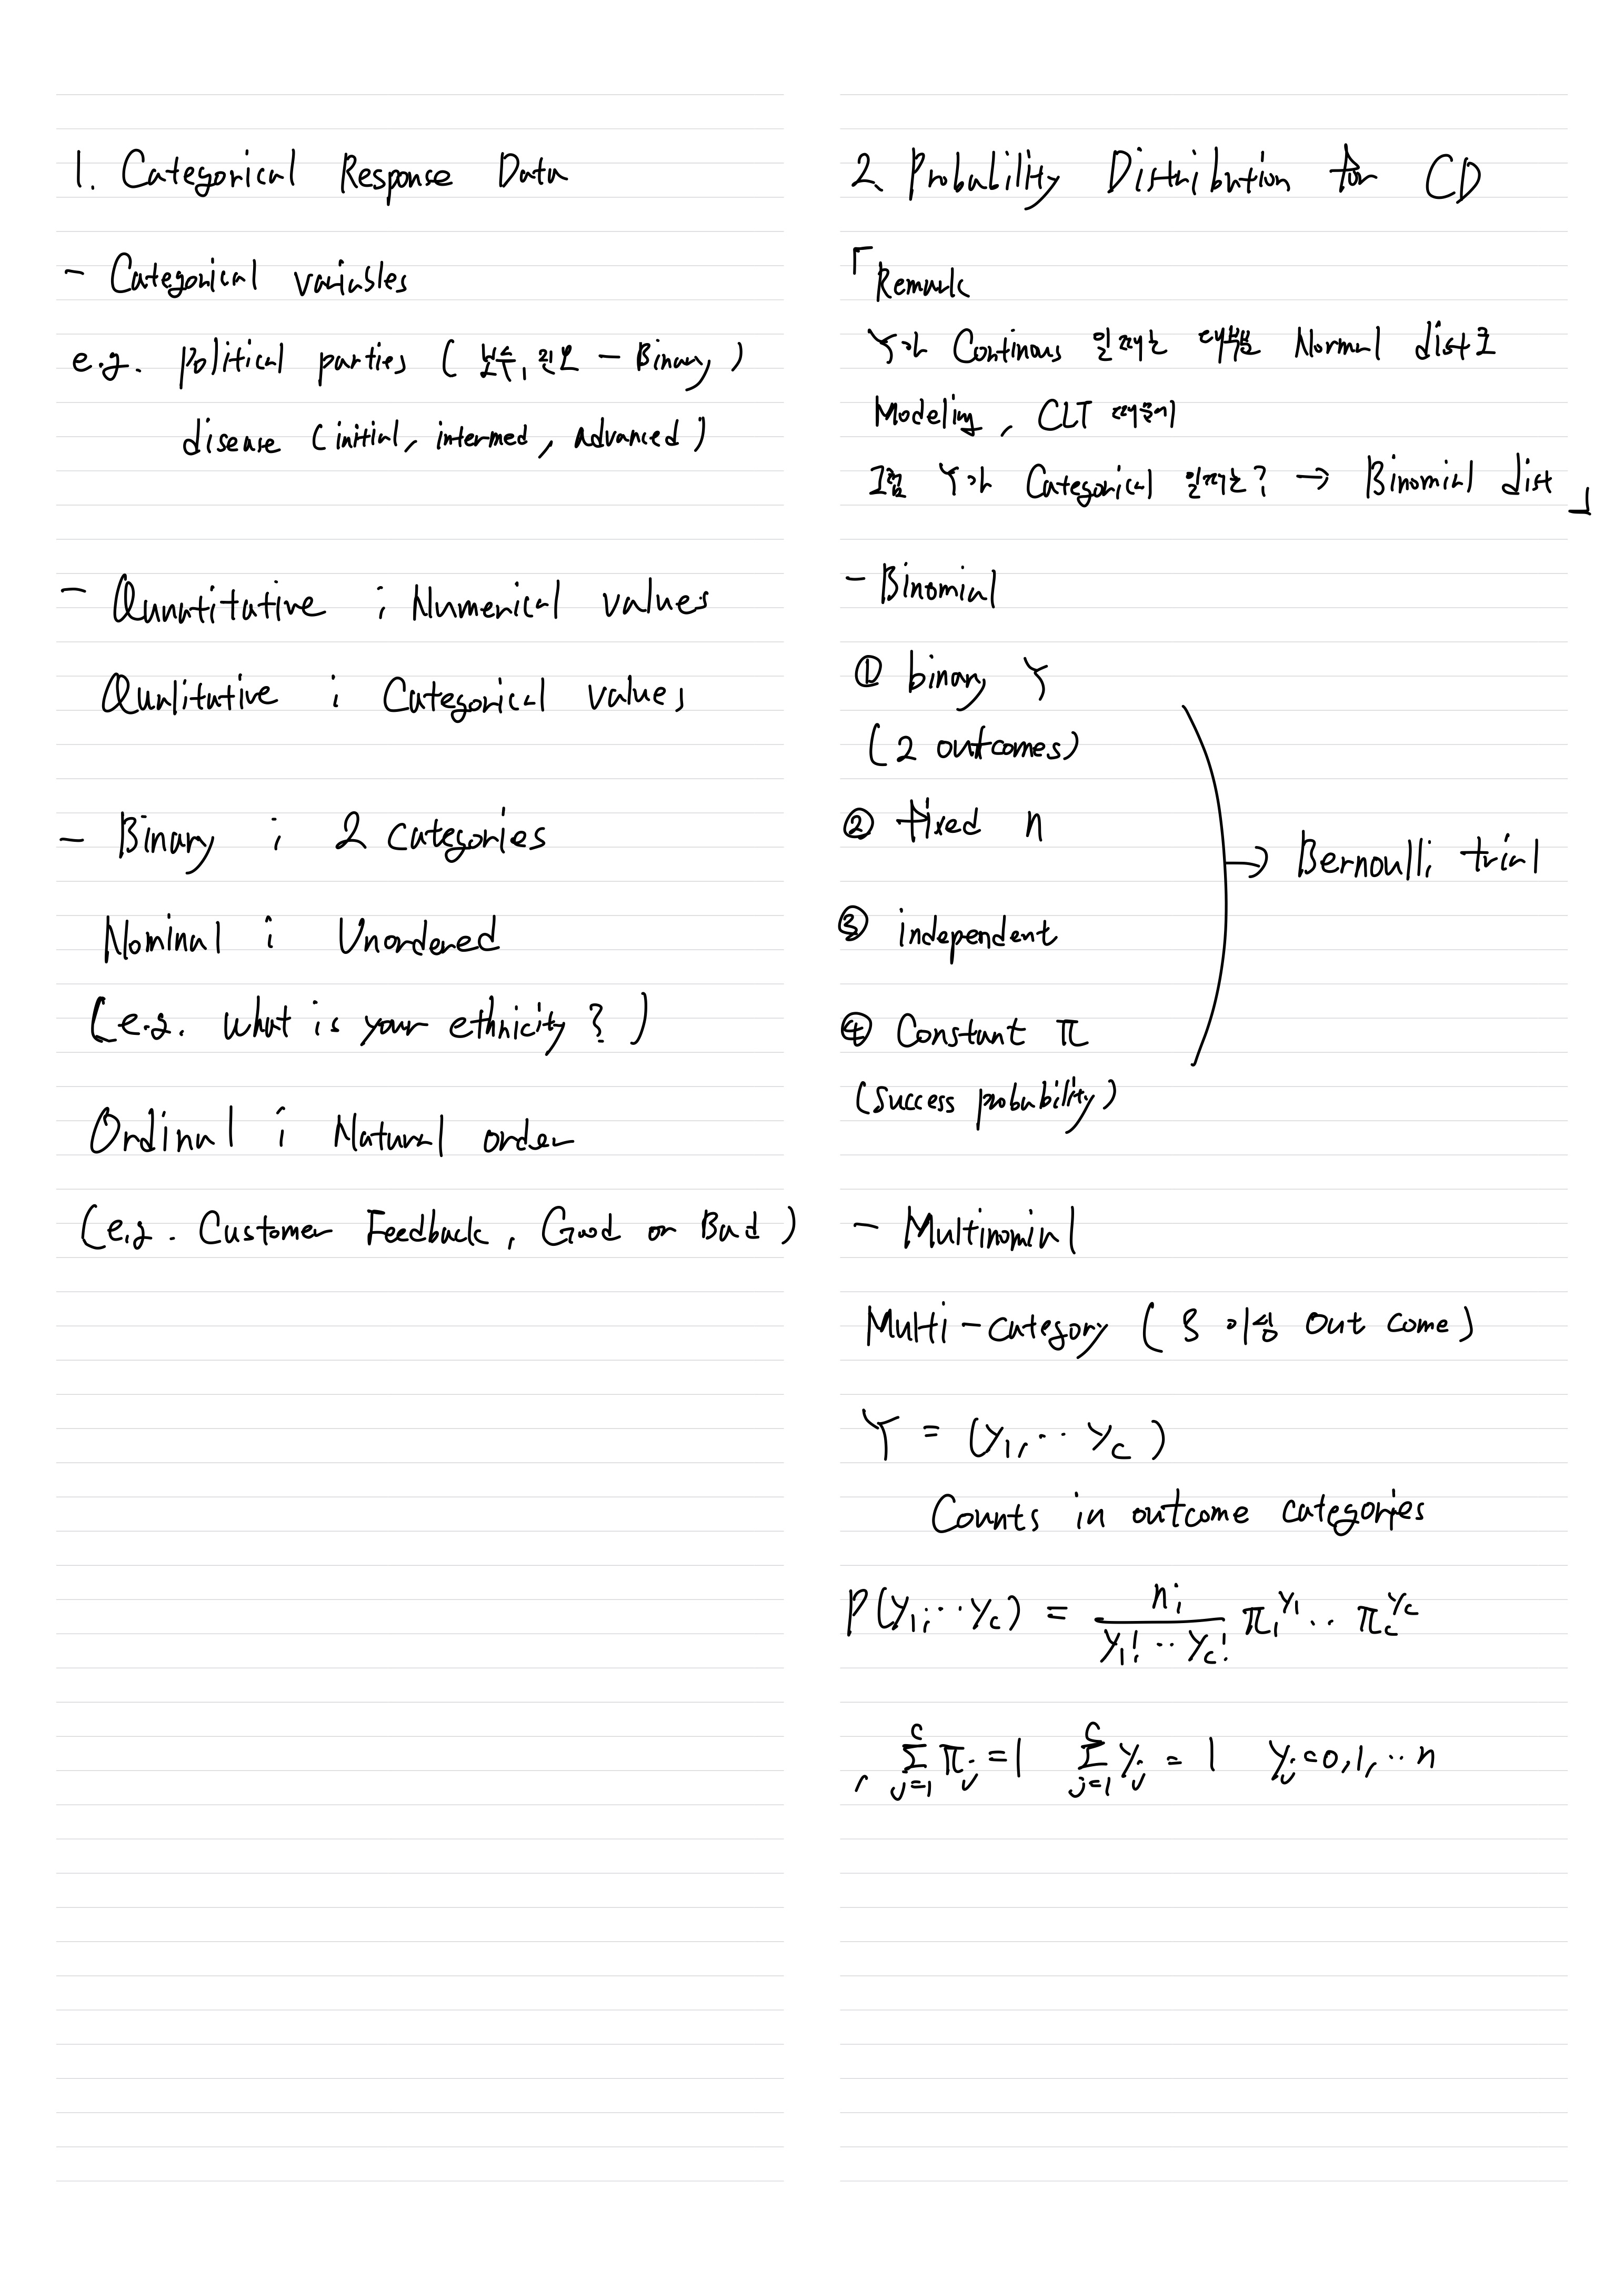 1. Categorical Response Data
- Categorical variables
e.g. political parties ( 보수, 진보 - Binary )
disease ( initial, intermed, advanced )
- Qunatitative ; Numerical values
Qualitative ; Categorical values
- Binary ; 2 Categories
Nominal ; Unordered
(e.g. what is your ethnicity ? )
Ordinal ; Natural order
(e.g. Customer Feedback, Good or Bad )
2. Probability Distribution for CD
「Remark
Y가 Continous 일때는 대부분 Normal dist로
Modeling, CLT 때문에
그럼 Y가 Categorical 일때는? → Binomial dist 」
- Binomial
① binary Y
( 2 outcomes)
② fixed n
③ independent
④ Constant π
(Success probability)
→ Bernoulli trial
- Multinomial
Multi-category ( 3 이상 Out come )
Y = (y₁, ·· y_c )
Counts in outcome categories
P(y₁, ·· y_c) = n! / (y₁! ·· y_c!) π₁^y₁ ·· π_c^y_c
, Σ_{j=1}^{c} π_j = 1 Σ_{j=1}^{c} y_j = 1 y_j = 0, 1, ·· n